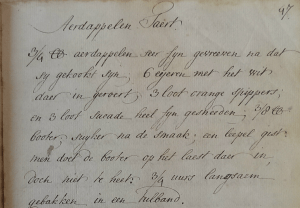 97.
Aerdappelen Taert.
3/4 lb aerdappelen seer fyn gevreeven na dat
sy gekookt syn, 6 eijeren met het wit
daer in geroert, 3 loot orange spippers,
en 3 loot sucade heel fyn gesneeden, 3/8 lb
booter, suyker na de smaak, een leepel gest
men doet de booter op het laest daer in,
doch niet te heet. 3/4 uurs langsaem
gebakken in een Tulband.